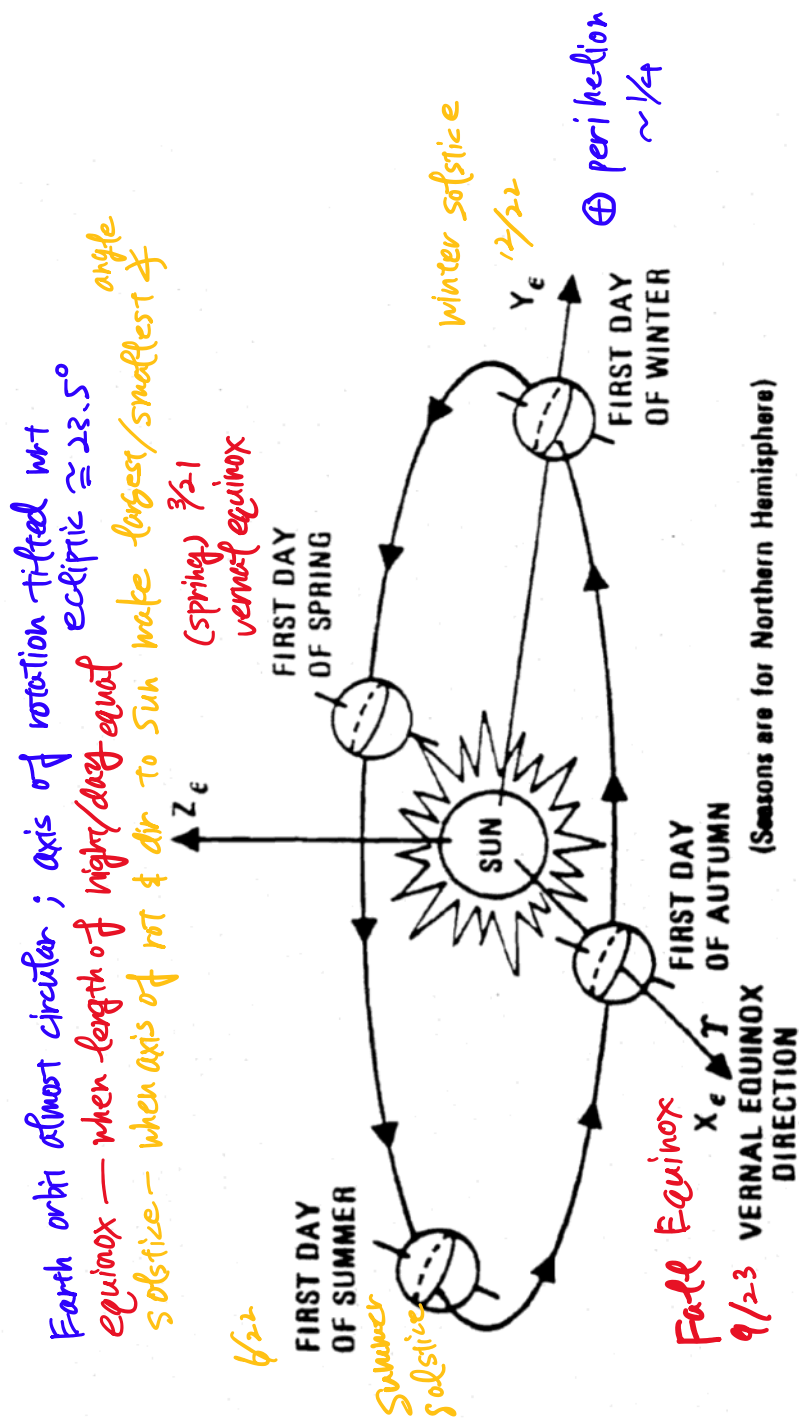 Earth orbit almost circular; axis of rotation tilted wrt
ecliptic ≅ 23.5°
equinox — when length of night/day equal
solstice — when axis of rot & dir to Sun make largest/smallest ∡
angle
(spring) 3/21
vernal equinox
winter solstice
12/22
⊕ perihelion
~ 1/4
6/22
Summer
Solstice
Fall Equinox
9/23
FIRST DAY
OF SUMMER
FIRST DAY
OF SPRING
FIRST DAY
OF WINTER
FIRST DAY
OF AUTUMN
Zϵ
Yϵ
Xϵ ♈
SUN
VERNAL EQUINOX
DIRECTION
(Seasons are for Northern Hemisphere)